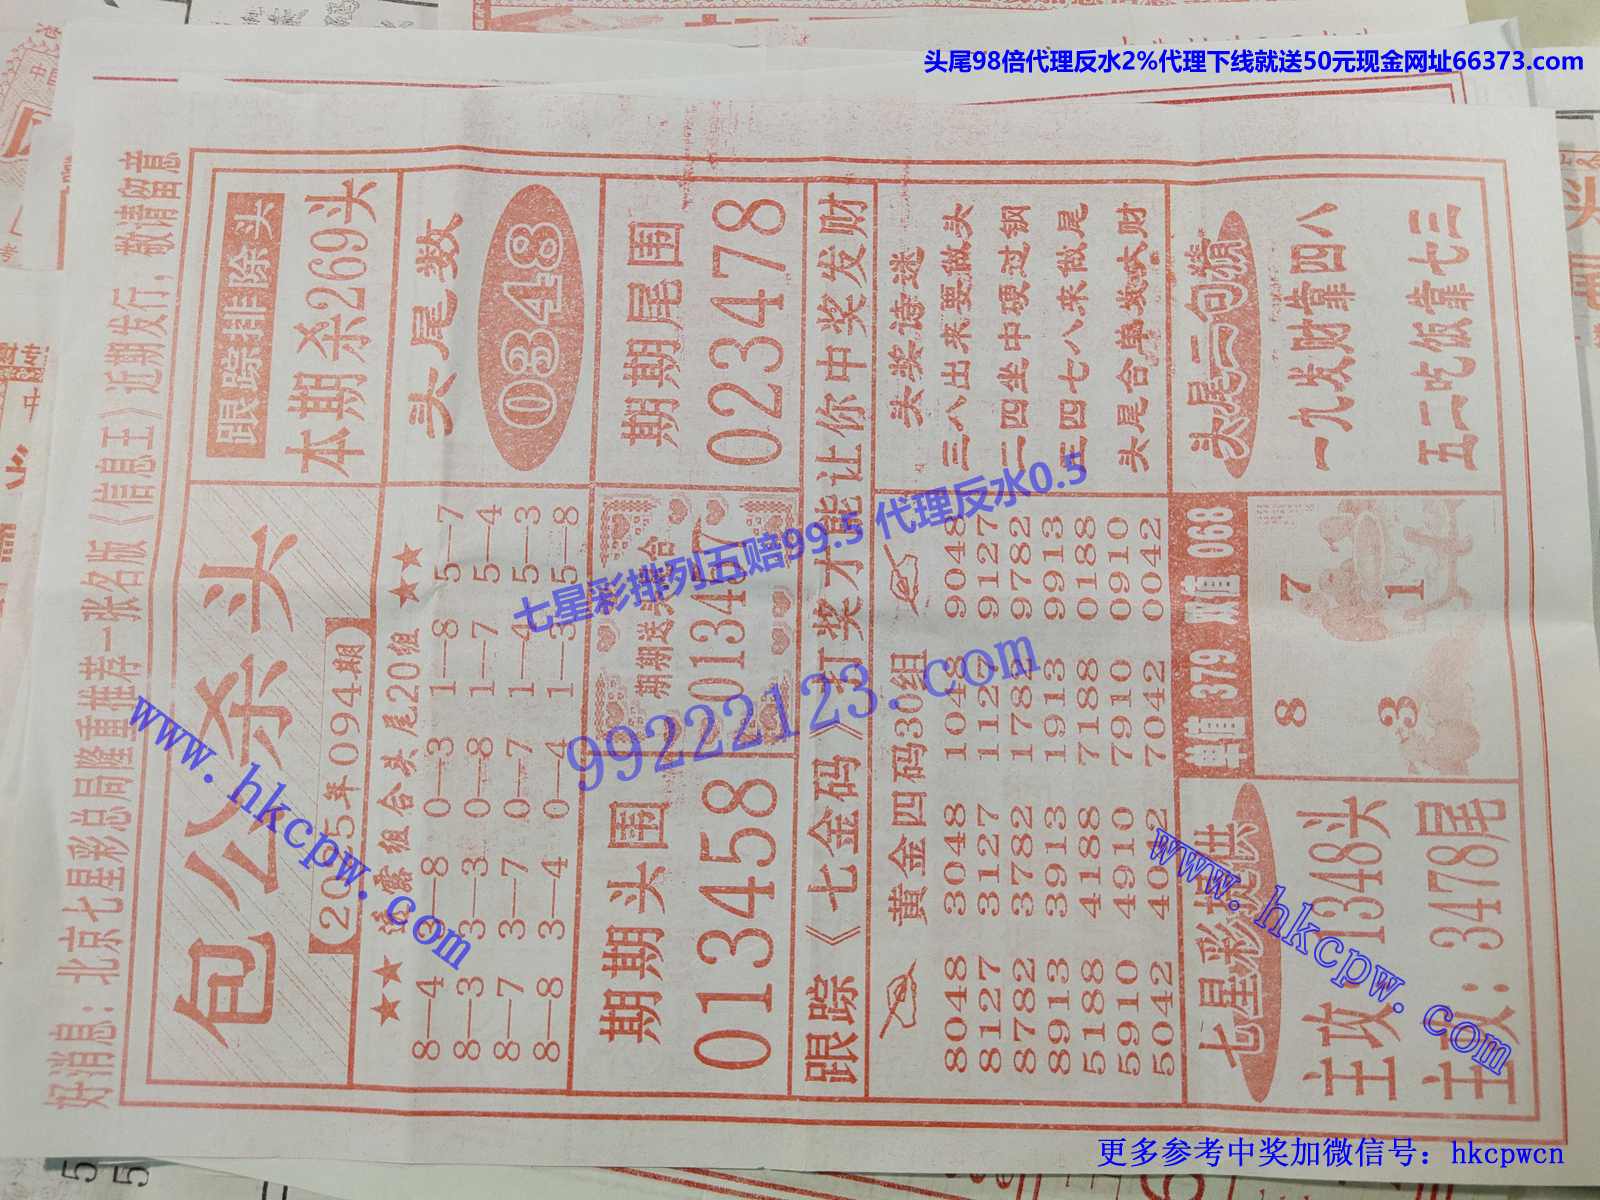 头尾98倍代理反水2%代理下线就送50元现金网址66373.com
好消息：北京七星彩总局隆重推荐一张名版《信息王》近期发行，敬请留意
包公杀头
2025年094期
跟踪排除头
本期杀269头
★★透露组合头尾20组★★
8—4 3—8 0—3 1—8 5—7
8—3 3—3 0—8 1—7 5—4
8—7 3—7 0—7 1—4 5—3
8—8 3—4 0—4 1—3 5—8
头尾数
0348
期期头围
013458
期期送
013447
期期尾围
023478
跟踪《七金码》打奖才能让你中奖发财
黄金四码30组
8048 3048 1048 9048
8127 3127 1127 9127
8782 3782 1782 9782
8913 3913 1913 9913
5188 4188 7188 0188
5910 4910 7910 0910
5042 4042 7042 0042
头奖诗迷
三八出来要做头
二四坐中硬过钢
三四七八来做尾
头尾合单发大财
七星彩提供
主攻：1348头
主攻：3478尾
单值 379 双值 068
8 7
3 1
头尾二句猜
一九发财靠四八
五二吃饭靠七三
www.hkcpw.com
七星彩排列五赔99.5 代理反水0.5
99222123.com
www.hkcpw.com
更多参考中奖加微信号：hkcpwcn